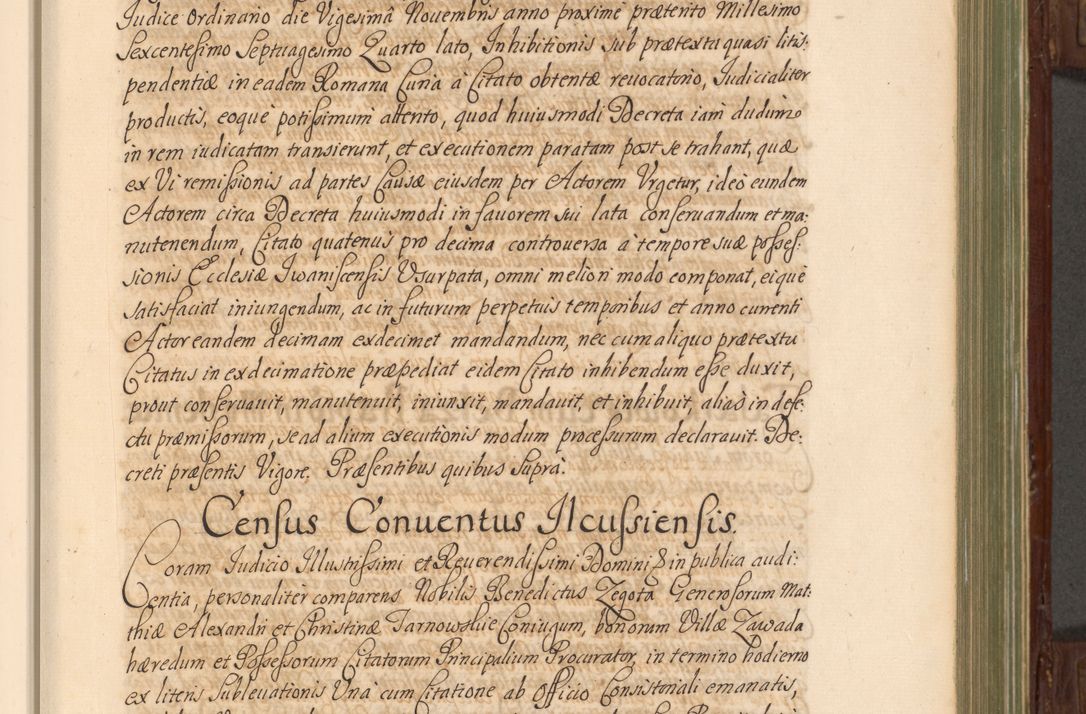 Judice Ordinario die Vigesimâ Novembris anno proximè præterito Millesimo
sexcentesimo Septuagesimo Quarto lato, Inhibitionis sub prætextu quasi litis-
pendentiæ in eadem Romana Curia à Citato obtentæ revocatorio, Judicialiter
productis, eoque potissimum attento, quod huiusmodi Decreta iam dudum
in rem iudicatam transierunt, et executionem paratam post se trahant, quæ
ex Vi remissionis ad partes Causæ eiusdem per Actorem Vrgetur, ideò eundem
Actorem circa Decreta huiusmodi in favorem sui lata conseruandum et ma-
nutenendum, Citato quatenus pro decima controversa à tempore suæ posses-
sionis Ecclesiæ Jwaniscensis Vsurpata, omni meliori modo componat, eique
satisfaciat iniungendum, ac in futurum perpetuis temporibus et anno currenti
Actor eandem decimam exdecimet mandandum, nec cum aliquo prætextu
Citatus in exdecimatione præpediat eidem Citato inhibendum esse duxit,
prout conseruauit, manutenuit, iniunxit, mandauit, et inhibuit, aliàs in defe-
ctu præmissorum, se ad alium executionis modum processurum declarauit. De-
creti præsentis Vigore. Præsentibus quibus supra.
Census Conuentus Ilcussiensis.
Coram Judicio Illustrissimi et Reuerendissimi Domini & in publica audi-
entia, personaliter comparens Nobilis Benedictus Zegota Generosorum Mat-
thiæ Alexandri et Christinæ Tarnowskie Coniugum, bonorum Villæ Zawada
hæredum et Possessorum Citatorum Principalium Procurator, in termino hodierno
ex literis Subleuationis Unà cum Citatione ab Officio Consistoriali emanatis,